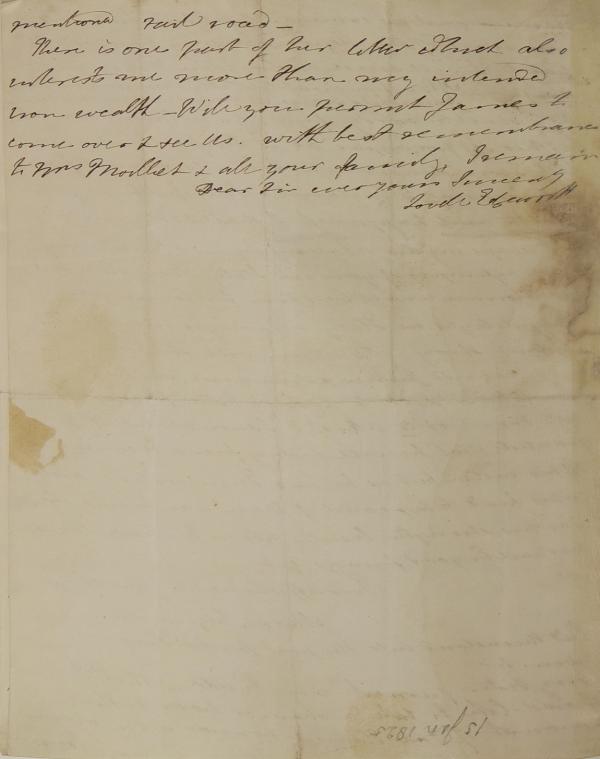 mentioned rail road –
There is one part of her letter which also
interests me more than my intended
iron wealth – Will you permit James to
come over & see us. with best remembrances
to Mrs Moilliet & all your family, I remain
Dear Sir ever yours Sincerely
Lovell Edgeworth
15 Jany 1825